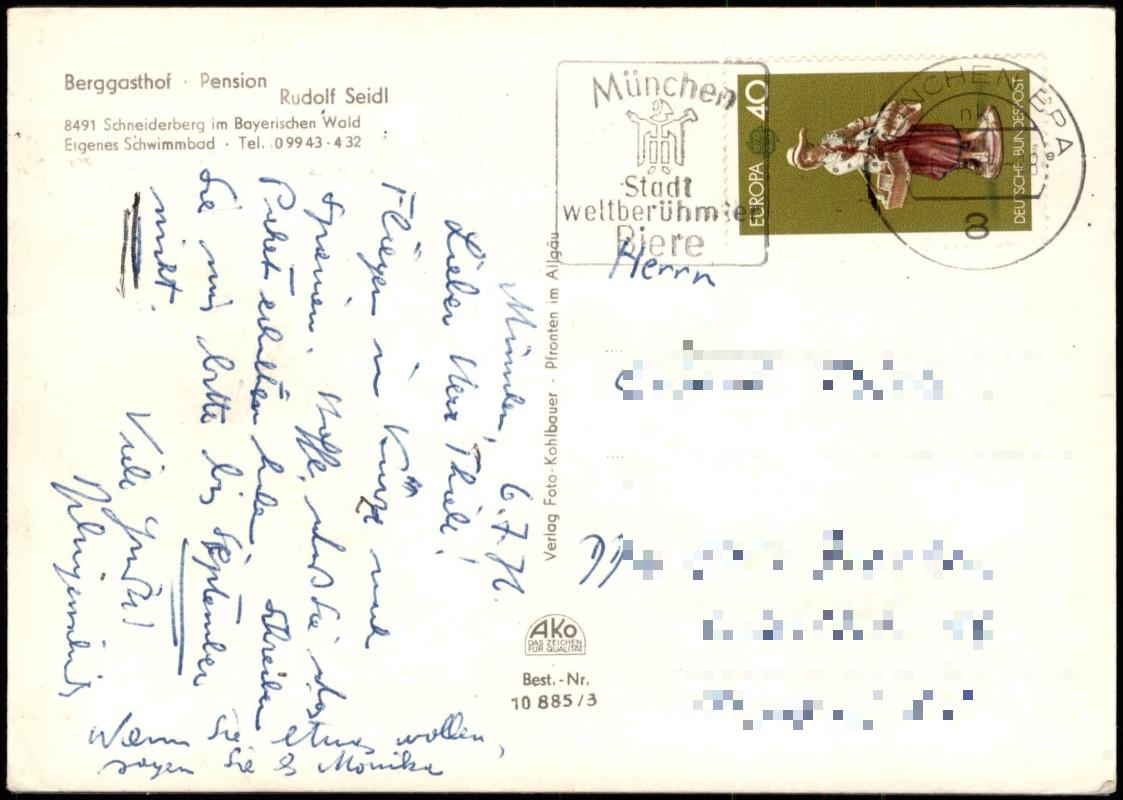 Berggasthof · Pension
Rudolf Seidl
8491 Schneiderberg im Bayerischen Wald
Eigenes Schwimmbad · Tel. 09943-432
München
Stadt
weltberühmter
Biere
EUROPA 40
DEUTSCHE BUNDESPOST
MÜNCHEN BPA
8
Herrn
München, 6.7.
Lieber Herr Thiele!
Fliegen in Kürze nach
Spanien. Hoffe, daß Sie das
Paket erhalten haben. Schreiben
Sie mir bitte bis September
nicht.
Viele Grüße!
Wenn Sie etwas wollen,
sagen Sie es Monika
Verlag Foto-Kohlbauer · Pfronten im Allgäu
AKO
DAS ZEICHEN
FÜR QUALITÄT
Best.-Nr.
10 885/3